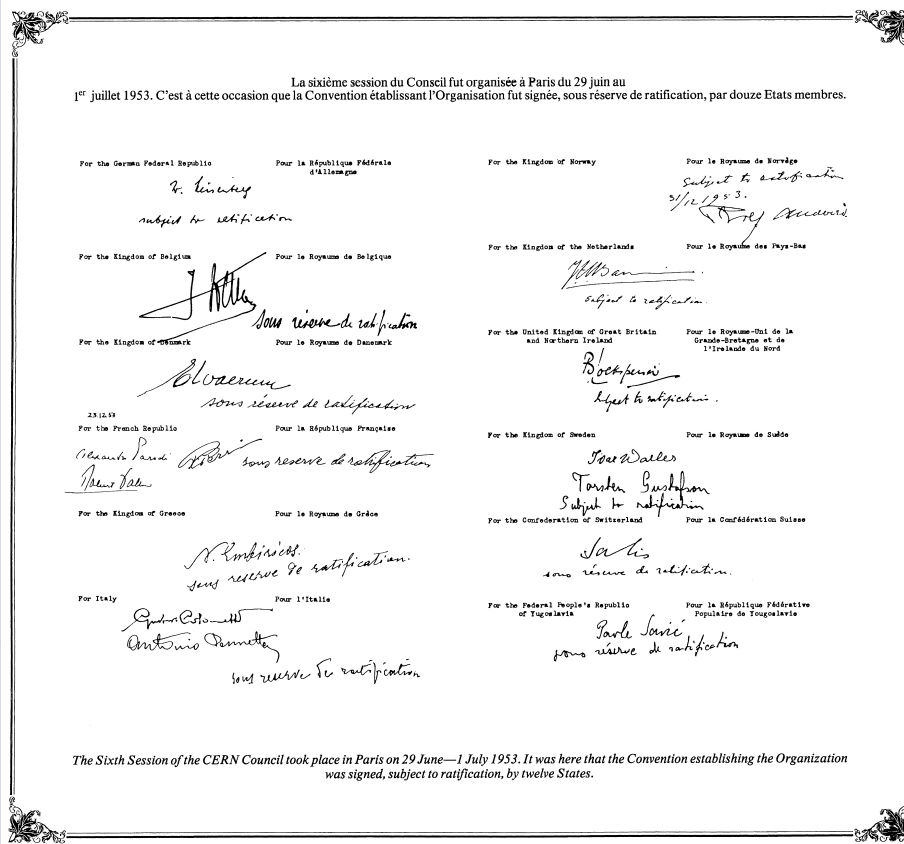 La sixième session du Conseil fut organisée à Paris du 29 juin au
1er juillet 1953. C'est à cette occasion que la Convention établissant l'Organisation fut signée, sous réserve de ratification, par douze Etats membres.
For the German Federal Republic
Pour la République Fédérale
d'Allemagne
subject to ratification
For the Kingdom of Belgium
Pour le Royaume de Belgique
sous réserve de ratification
For the Kingdom of Denmark
Pour le Royaume de Danemark
sous réserve de ratification
23.12.53
For the French Republic
Pour la République Française
Alexandre Parodi
sous reserve de ratification
For the Kingdom of Greece
Pour le Royaume de Grèce
N. Embiricos.
sous reserve de ratification.
For Italy
Pour l'Italie
Gustavo Colonnetti
Antonio Pennetta
sous reserve de ratification
For the Kingdom of Norway
Pour le Royaume de Norvège
Subject to ratification
31/12 1953.
For the Kingdom of the Netherlands
Pour le Royaume des Pays-Bas
subject to ratification.
For the United Kingdom of Great Britain
and Northern Ireland
Pour le Royaume-Uni de la
Grande-Bretagne et de
l'Irelande du Nord
subject to ratification.
For the Kingdom of Sweden
Pour le Royaume de Suède
Ivar Waller
Torsten Gustafson
Subject to ratification
For the Confederation of Switzerland
Pour la Confédération Suisse
Salis
sous réserve de ratification.
For the Federal People's Republic
of Yugoslavia
Pour la République Fédérative
Populaire de Yougoslavie
Pavle Savić
sous réserve de ratification
The Sixth Session of the CERN Council took place in Paris on 29 June—1 July 1953. It was here that the Convention establishing the Organization
was signed, subject to ratification, by twelve States.